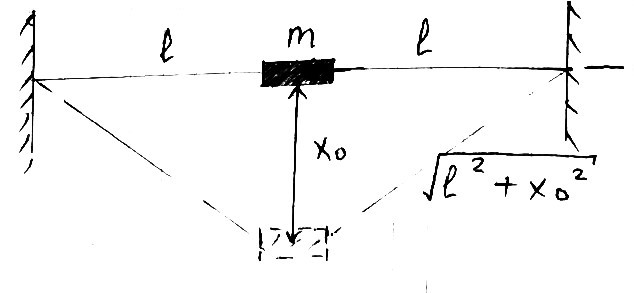 l m l
x₀
√(l² + x₀²)